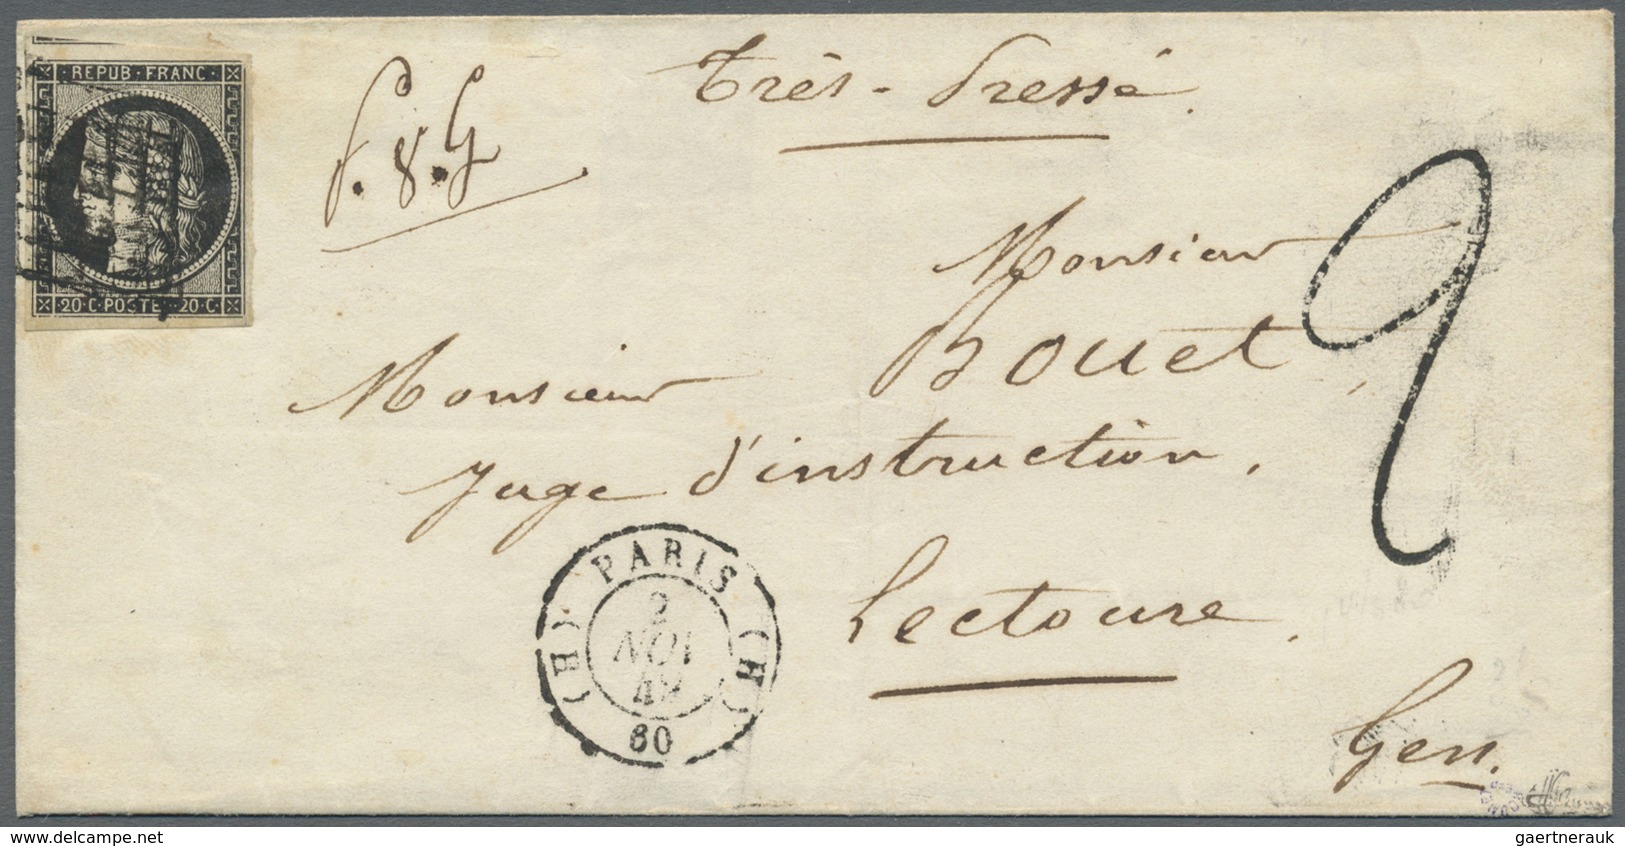 REPUB · FRANC ·
20 · C · POSTE · 20 · C ·
Très - Pressé.
f. 8. G
Monsieur
Bouet,
Monsieur
Juge d'instruction,
Lectoure,
Gers.
2
PARIS
(H) (H)
2
NOV
49
60
delcampe.net
gaertnerauk